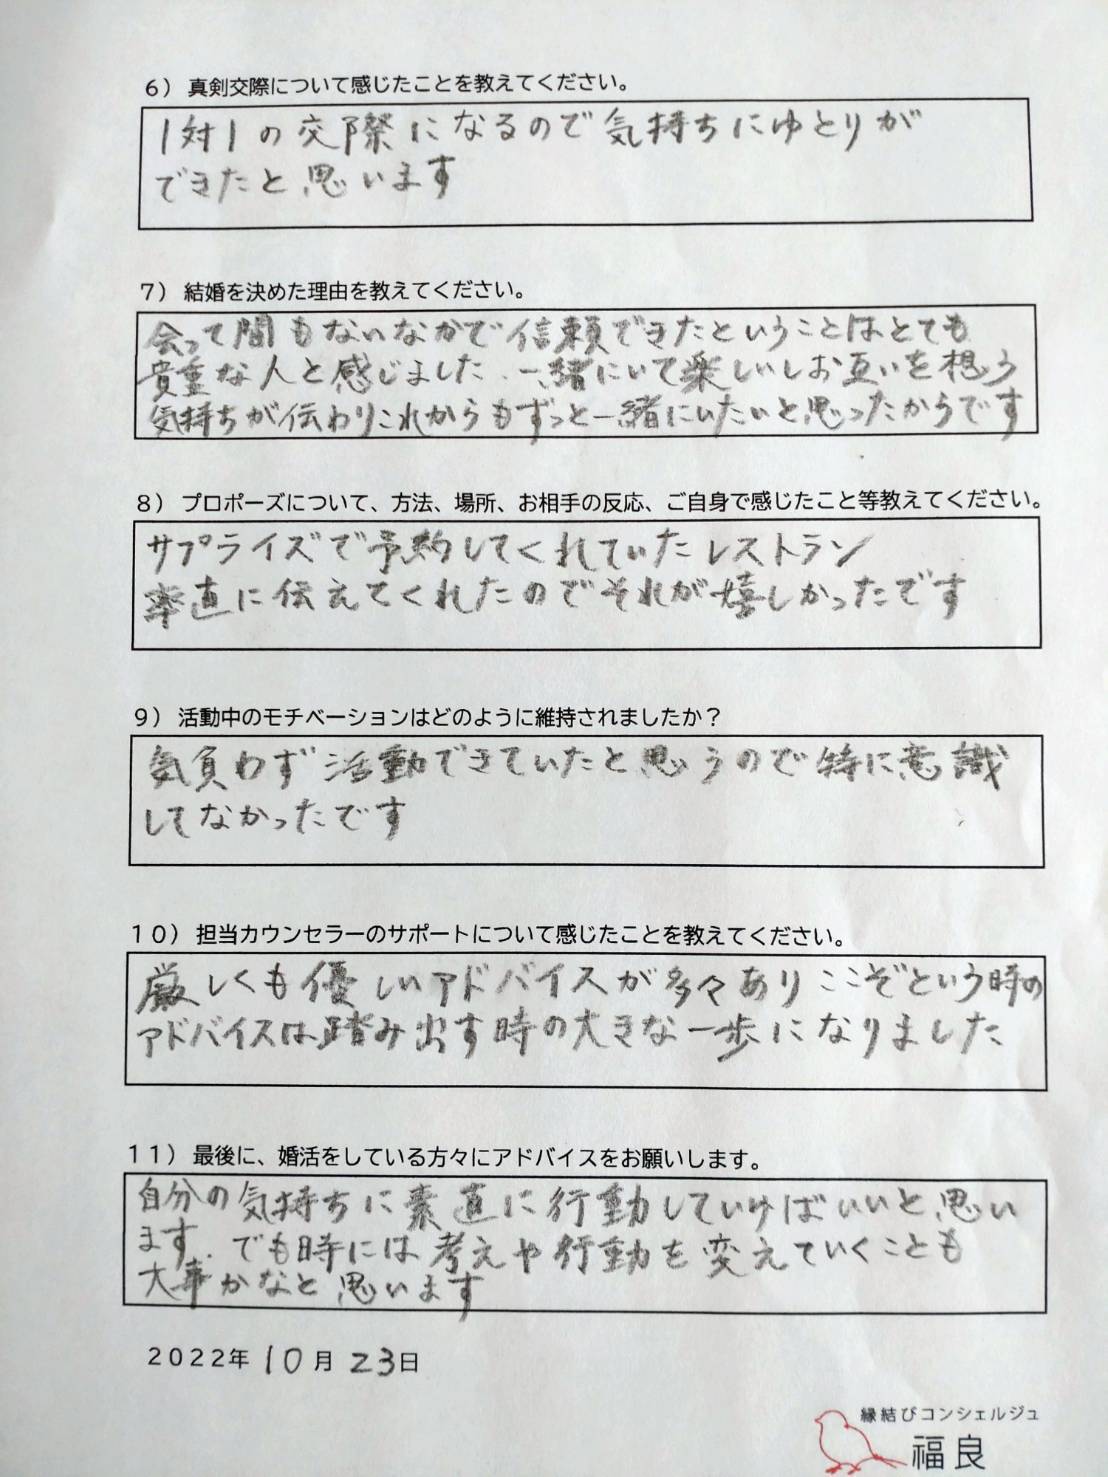 6) 真剣交際について感じたことを教えてください。
1対1の交際になるので気持ちにゆとりが
できたと思います
7) 結婚を決めた理由を教えてください。
会って間もないなかで信頼できたということはとても
貴重な人と感じました.一緒にいて楽しいしお互いを想う
気持ちが伝わりこれからもずっと一緒にいたいと思ったからです
8) プロポーズについて、方法、場所、お相手の反応、ご自身で感じたこと等教えてください。
サプライズで予約してくれていたレストラン
率直に伝えてくれたのでそれが嬉しかったです
9) 活動中のモチベーションはどのように維持されましたか？
気負わず活動できていたと思うので特に意識
してなかったです
10) 担当カウンセラーのサポートについて感じたことを教えてください。
厳しくも優しいアドバイスが多々ありここぞという時の
アドバイスは踏み出す時の大きな一歩になりました
11) 最後に、婚活をしている方々にアドバイスをお願いします。
自分の気持ちに素直に行動していけばいいと思い
ます.でも時には考えや行動を変えていくことも
大事かなと思います
2022年 10月 23日
縁結びコンシェルジュ
福良